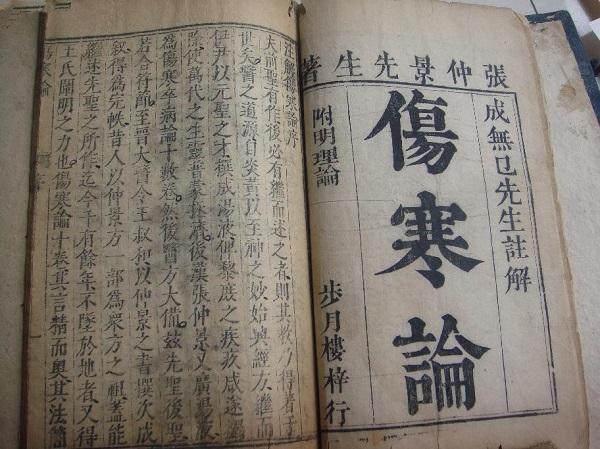 張仲景先生著
成無已先生註解
傷寒論
附明理論
步月樓梓行
注解傷寒論序
夫前聖有作後必有繼而述之者則其教乃得著于
世矣醫之道源自炎黃以至神之妙始興經方繼而
伊尹以元聖之才撰成湯液俾黎庶之疾疢咸遂蠲
除使萬代之生靈普蒙拯濟後漢張仲景又廣湯液
為傷寒卒病論十數卷然後醫方大備茲先聖後聖
若合符節至晉太醫令王叔和以仲景之書撰次成
敘得為完帙昔人以仲景方一部為衆方之祖蓋能
繼述先聖之所作迄今千有餘年不墜於地者又得
王氏闡明之力也傷寒論十卷其言精而奧其法簡
傷寒論